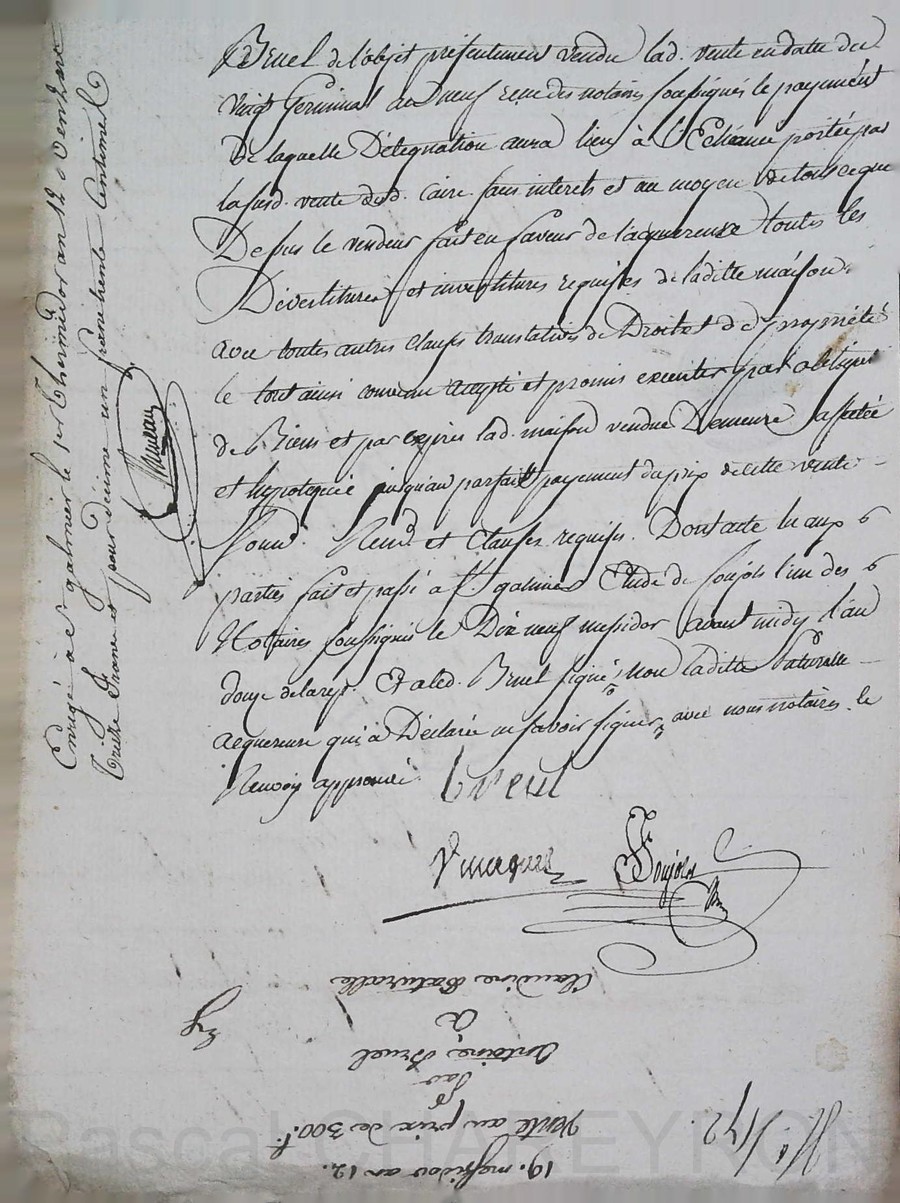 Bruel de l'objet présentement vendu lad. vente en datte du
vingt Germinal an neuf reçue des notaires soussignés le payement
de laquelle Délégation aura lieu à l'Echéance portée par
la susd. vente dud. Caire sans interets et au moyen de tout ce que
Dessus le vendeur fait en faveur de l'acquereuse toutes les
Devestitures et investitures requises de laditte maison
avec toutes autres clauses translatives de Droits et de propriétés
le tout ainsi convenu accepté et promis executer par obligation
de Biens et par exprès lad. maison vendue Demeure affectée
et hypotequée jusqu'au parfait payement du prix de cette vente
Soumd. Renond. et Clauses requises. Dont acte lu aux
parties fait et passé à St. galmier Etude de Soujols l'un des
Notaires soussignés le Dix neuf messidor avant midy l'an
douze de la rep. Et a led. Bruel signé, non laditte Baturalle
acquereuse qui a Déclaré ne savoir signer, avec nous notaires. le
Renvoy approuvé.
breul
Soujols
Enrgé à St galmier le 1er Thermidor an 12 Reçu
treize francs et pour decime un franc trente Centimes
19. messidor an 12.
Vente au prix de 300 f.
Par
Antoine Bruel
à
Claudine Baturalle
No. 172.
Pascal CHAREYRON